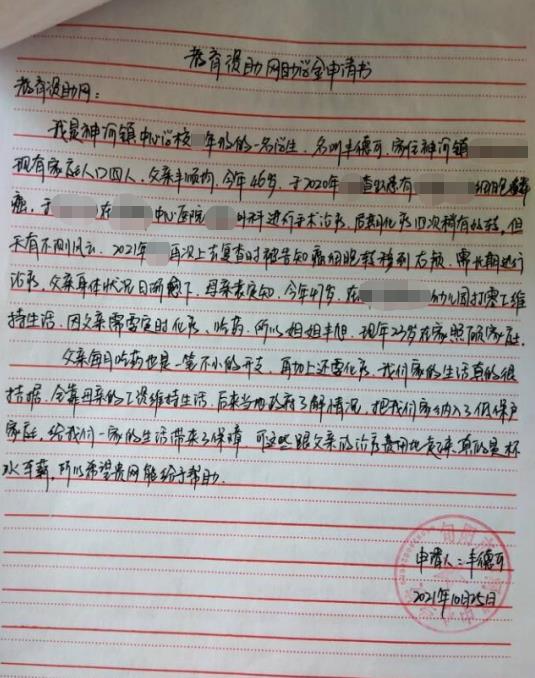 教育资助网助学金申请书
教育资助网：
我是神河镇中心学校 年级的一名学生，名叫丰德可，家住神河镇
现有家庭人口四人，父亲丰顺均，今年46岁，于2020年 查出患有 细胞
癌，于 在 中心医院 外科进行手术治疗，后期化疗四次稍有好转，但
天有不测风云，2021年 再次上去复查时被告知癌细胞转移到右额，需长期进行
治疗，父亲身体状况日渐愈下，母亲 今年47岁，在 幼儿园打零工维
持生活，因父亲需要定时化疗、吃药，所以姐姐丰旭，现年23岁在家照顾家庭。
父亲每日吃药也是一笔不小的开支，再加上还需化疗，我们家的生活真的很
拮据，全靠母亲的工资维持生活，后来当地政府了解情况，把我们家纳入了低保户
家庭，给我们一家的生活带来了保障，可这些跟父亲的治疗费用比起来，真的是杯
水车薪，所以希望贵网能给予帮助。
申请人：丰德可
2021年10月25日